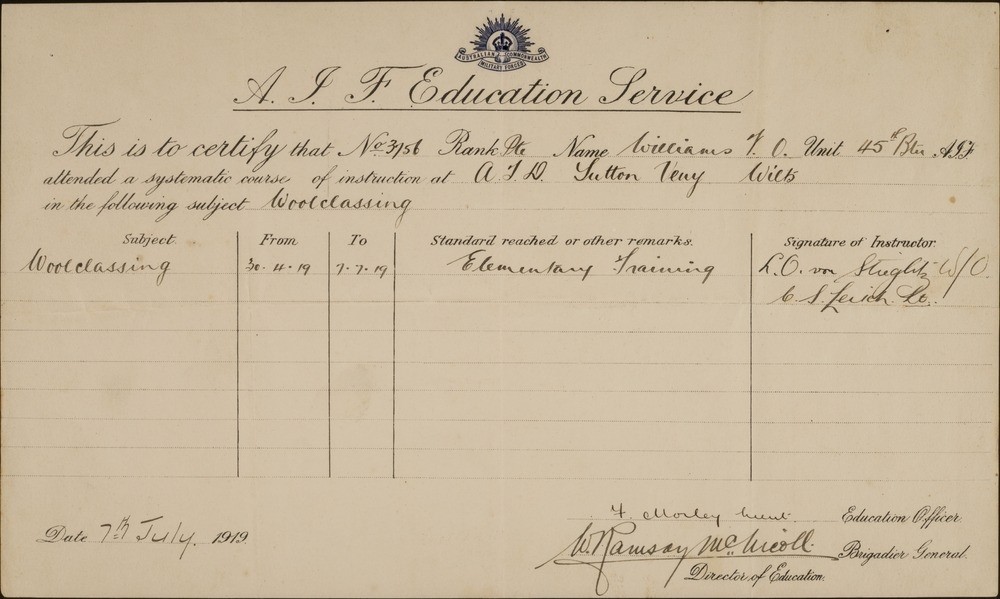 AUSTRALIAN COMMONWEALTH
MILITARY FORCES
A. I. F. Education Service
This is to certify that No 3156 Rank Pte Name Williams F. O. Unit 45th Btn A.I.F.
attended a systematic course of instruction at A.I.D. Sutton Veny Wilts
in the following subject Woolclassing
Subject. From To Standard reached or other remarks. Signature of Instructor.
Woolclassing 30.4.19 7.7.19 Elementary Training L.O. von Stieglitz W/O.
C. S.
Date 7th July. 1919
F. Morley Education Officer.
W. Ramsay McNicoll. Brigadier General.
Director of Education.